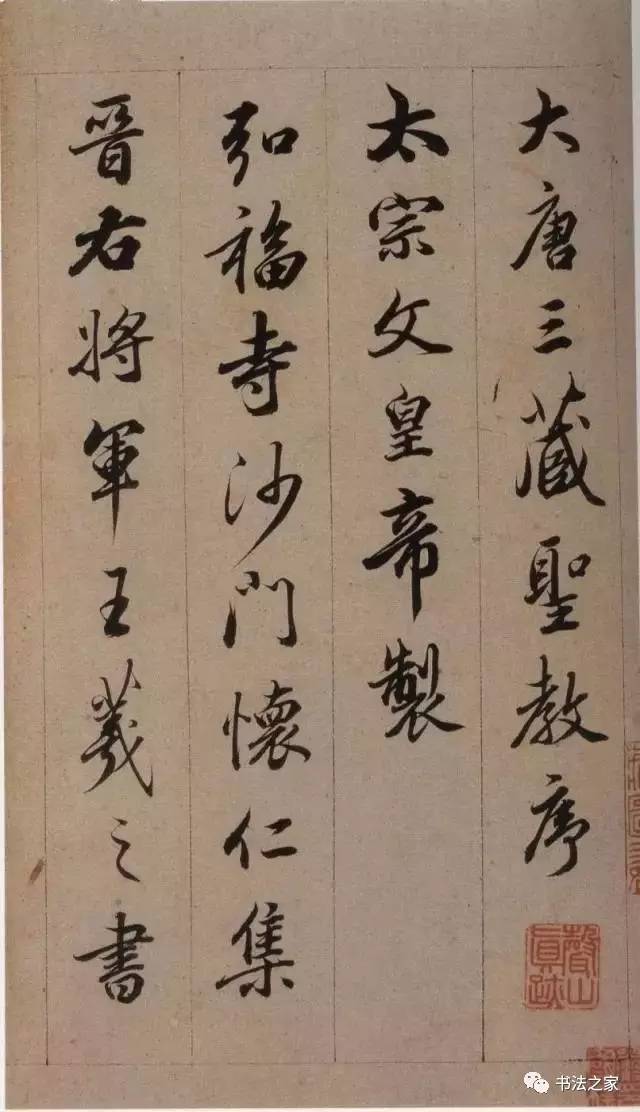 大唐三藏聖教序
太宗文皇帝製
弘福寺沙門懷仁集
晉右將軍王羲之書
書法之家